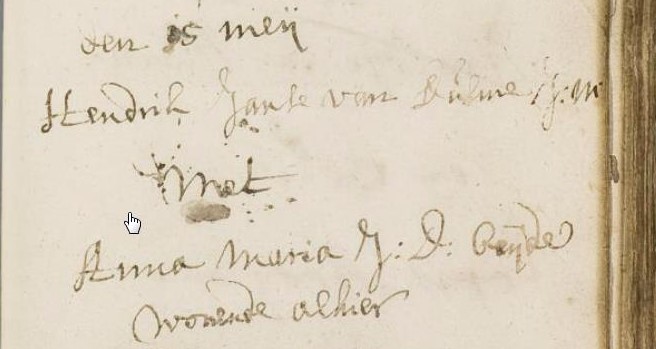 den 15 meij
Hendrik Janse van J: M
Met
Anna Maria J: D: beijde
woonende alhier